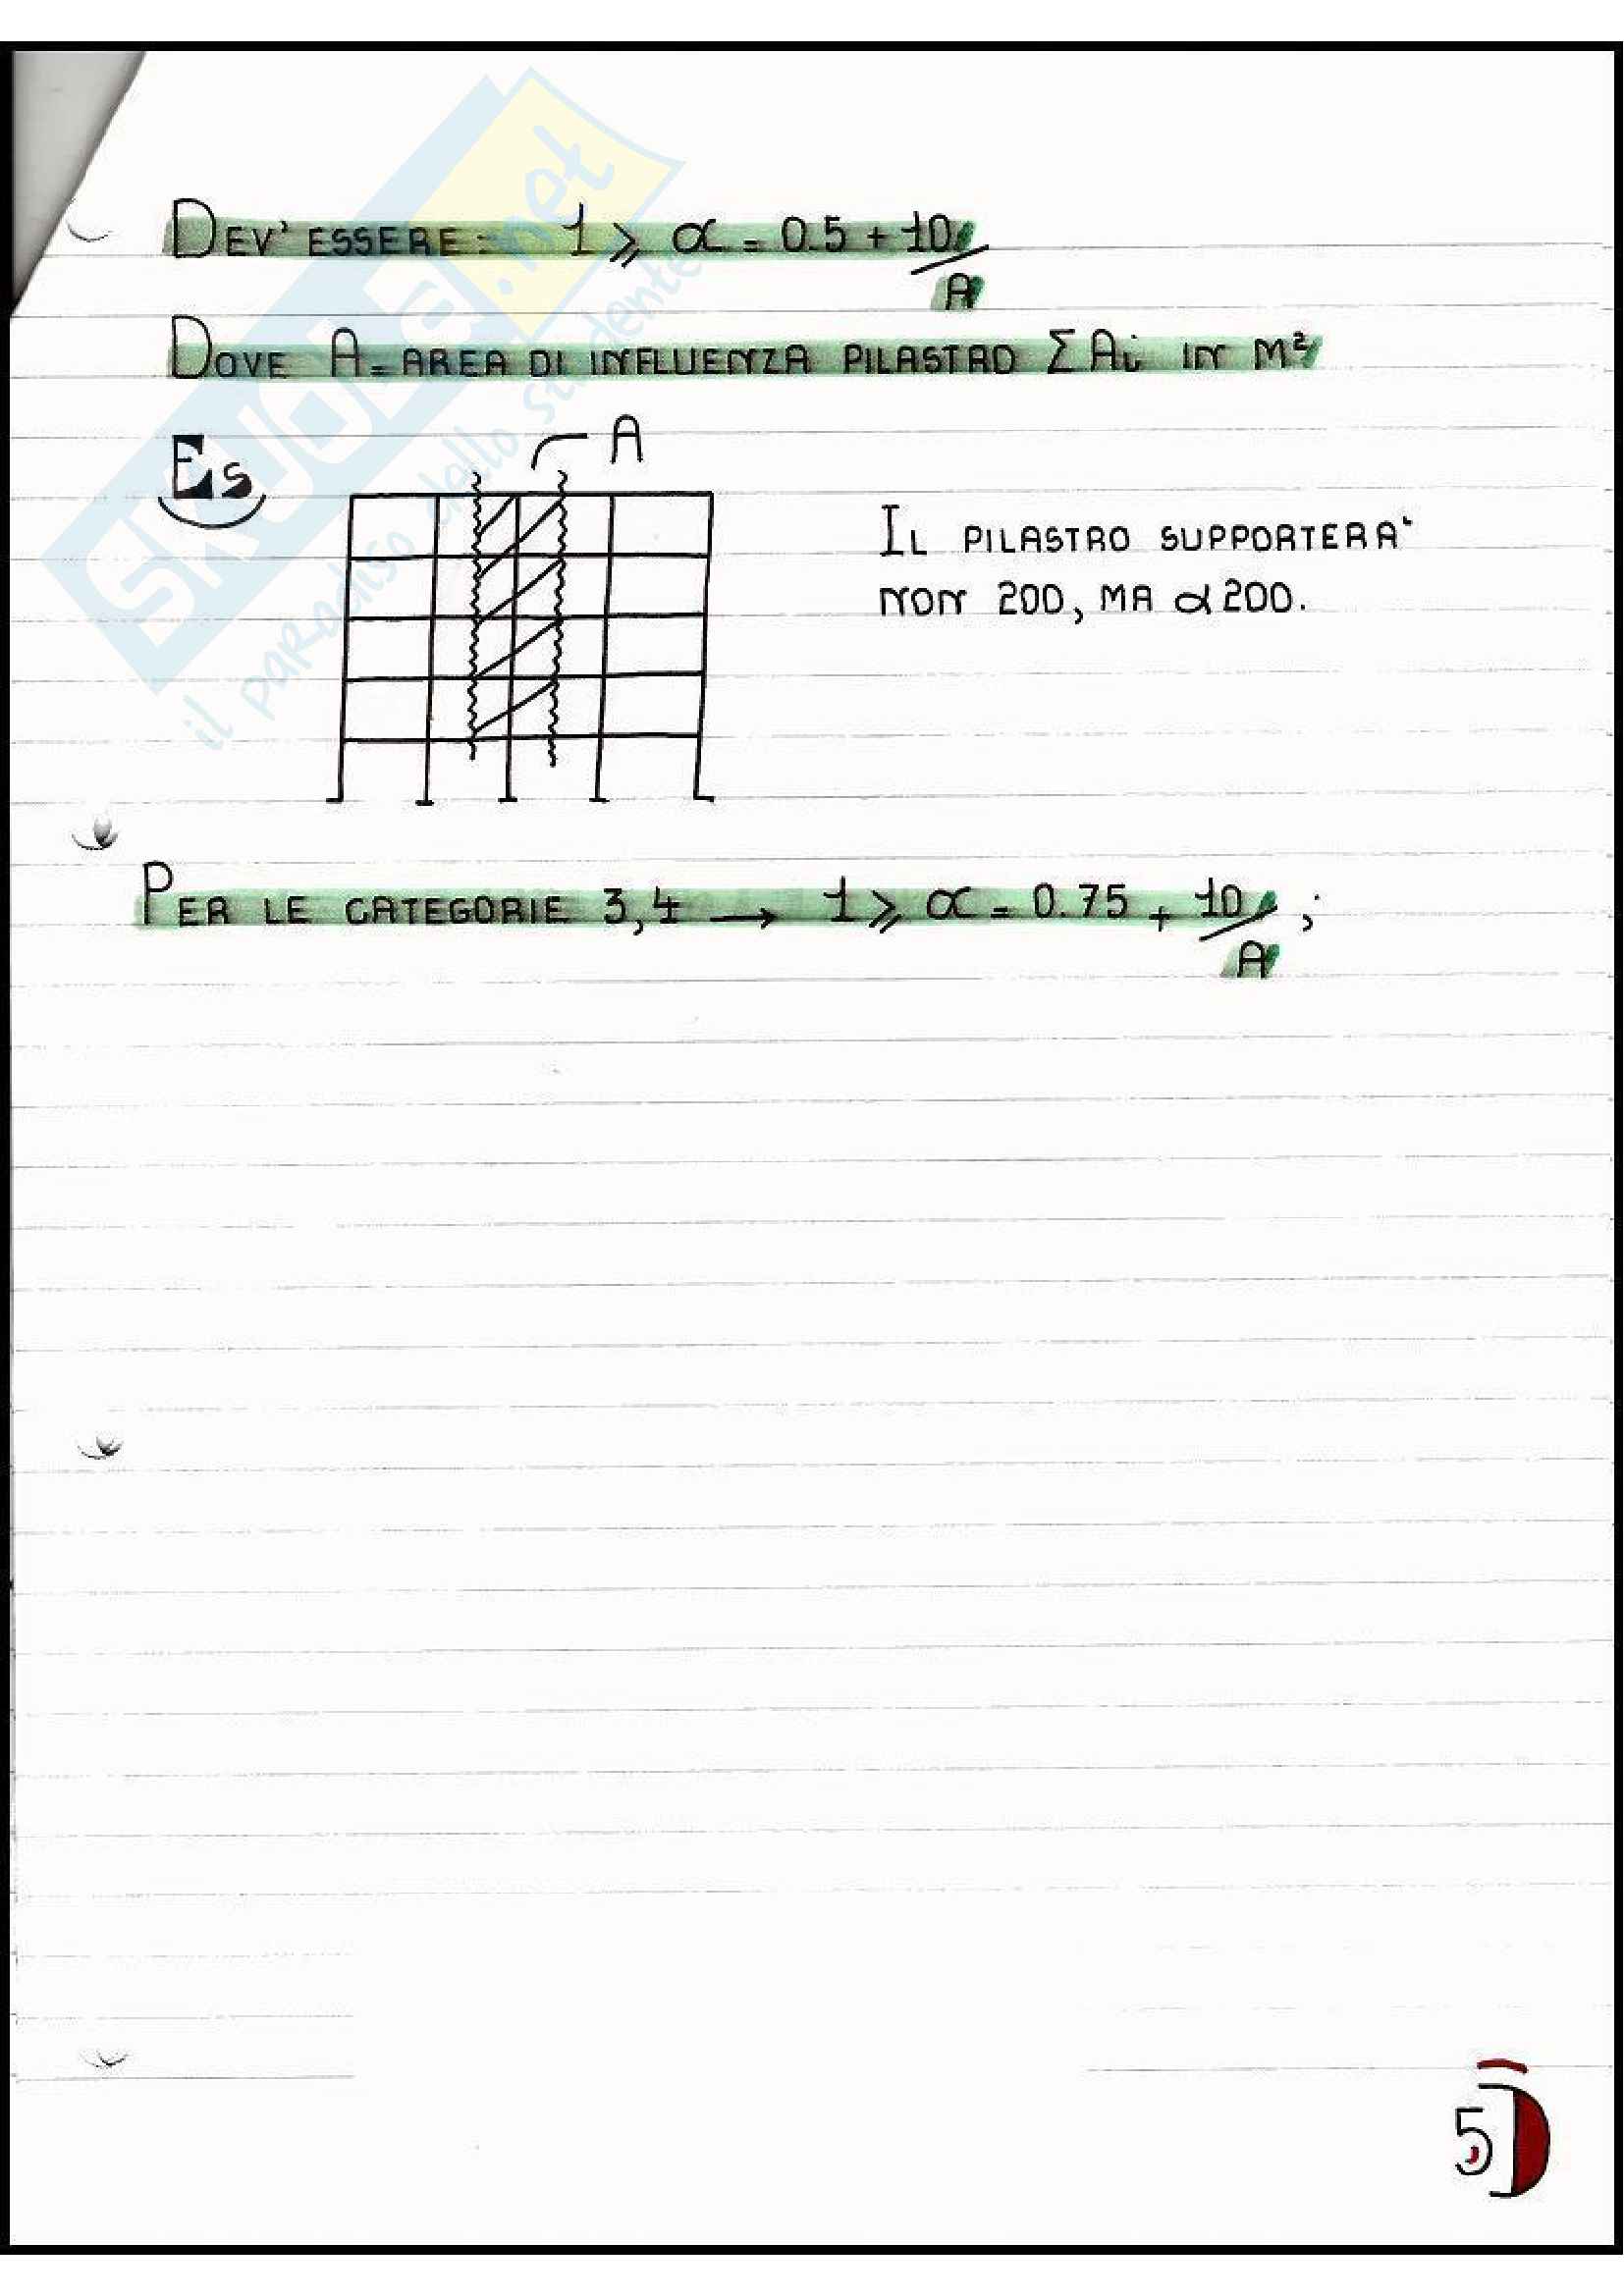 DEV' ESSERE: 1 ⩾ α = 0.5 + 10/A
DOVE A = AREA DI INFLUENZA PILASTRO ΣAi IN M²
ES
A
IL PILASTRO SUPPORTERA'
NON 200, MA α200.
PER LE CATEGORIE 3,4 → 1 ⩾ α = 0.75 + 10/A ;
5
SKUOLA.net
il paradiso dello studente